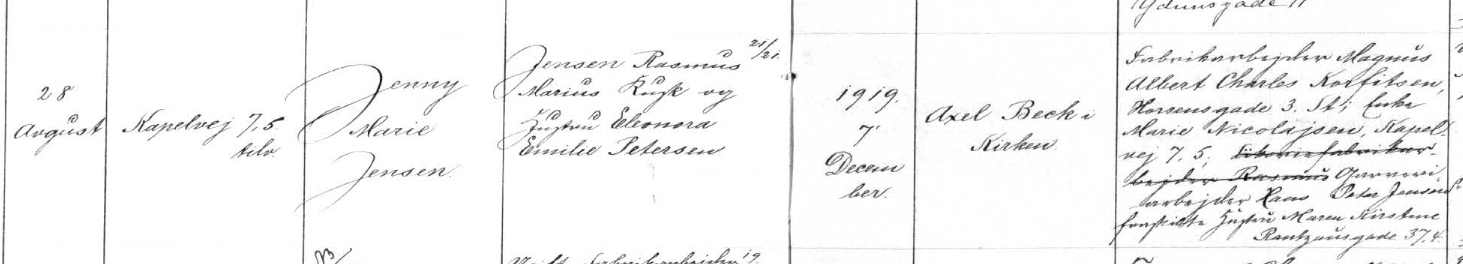 Ydunsgade 11
28
Avgust
Kapelvej 7. 5.
tilv.
Jenny
Marie
Jensen.
Jensen Rasmus 21/21.
Marius Kusk og
Hustru Eleonora
Emilie Petersen
1919.
7'
Decem
ber.
Axel Beck i
Kirken.
Fabrikarbejder Magnus
Albert Charles Korfitsen,
Horsensgade 3. St; Enke
Marie Nicolajsen, Kapel-
vej 7. 5;
bejder Rasmus Garveri
arbejder Hans Peter Jensens
fraskilte Hustru Maren Kirstine
Rantzausgade 37. 4.